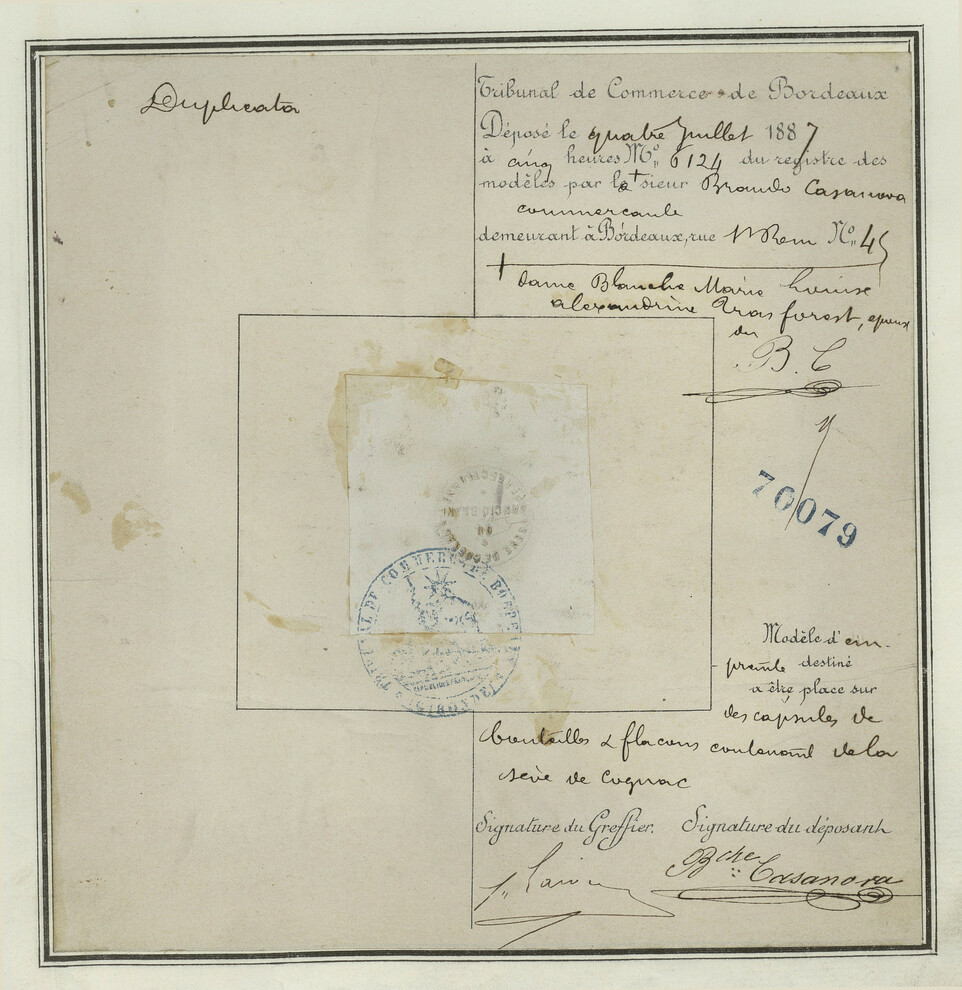 Duplicata
Tribunal de Commerce de Bordeaux
Déposé le quatre Juillet 1887
à cinq heures No. 6124 du registre des
modèles par le sieur Casanova
commercante
demeurant à Bordeaux, rue No. 45
dame Blanche Marie Louise
alexandrine forest, epouse
du
B. C
70079
TRIBUNAL DE COMMERCE DE BORDEAUX
Modèle d'em-
preinte destiné
a être place sur
des capsules de
bouteilles & flacons contenant de la
sève de Cognac
Signature du Greffier. Signature du déposant
Bche Casanova